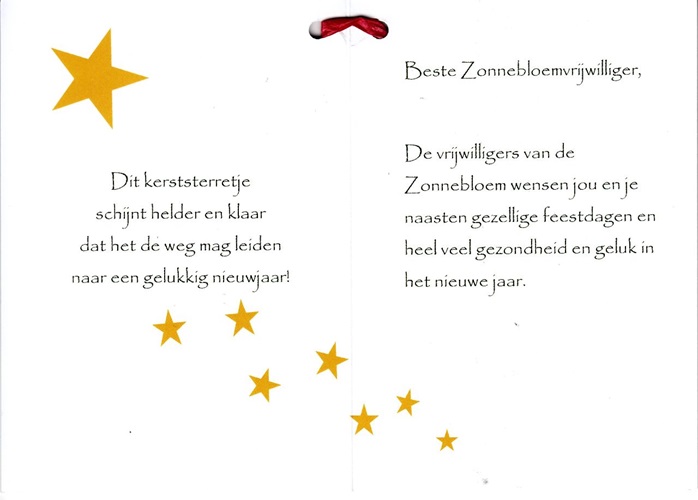 Dit kerststerretje
schijnt helder en klaar
dat het de weg mag leiden
naar een gelukkig nieuwjaar!
Beste Zonnebloemvrijwilliger,
De vrijwilligers van de
Zonnebloem wensen jou en je
naasten gezellige feestdagen en
heel veel gezondheid en geluk in
het nieuwe jaar.